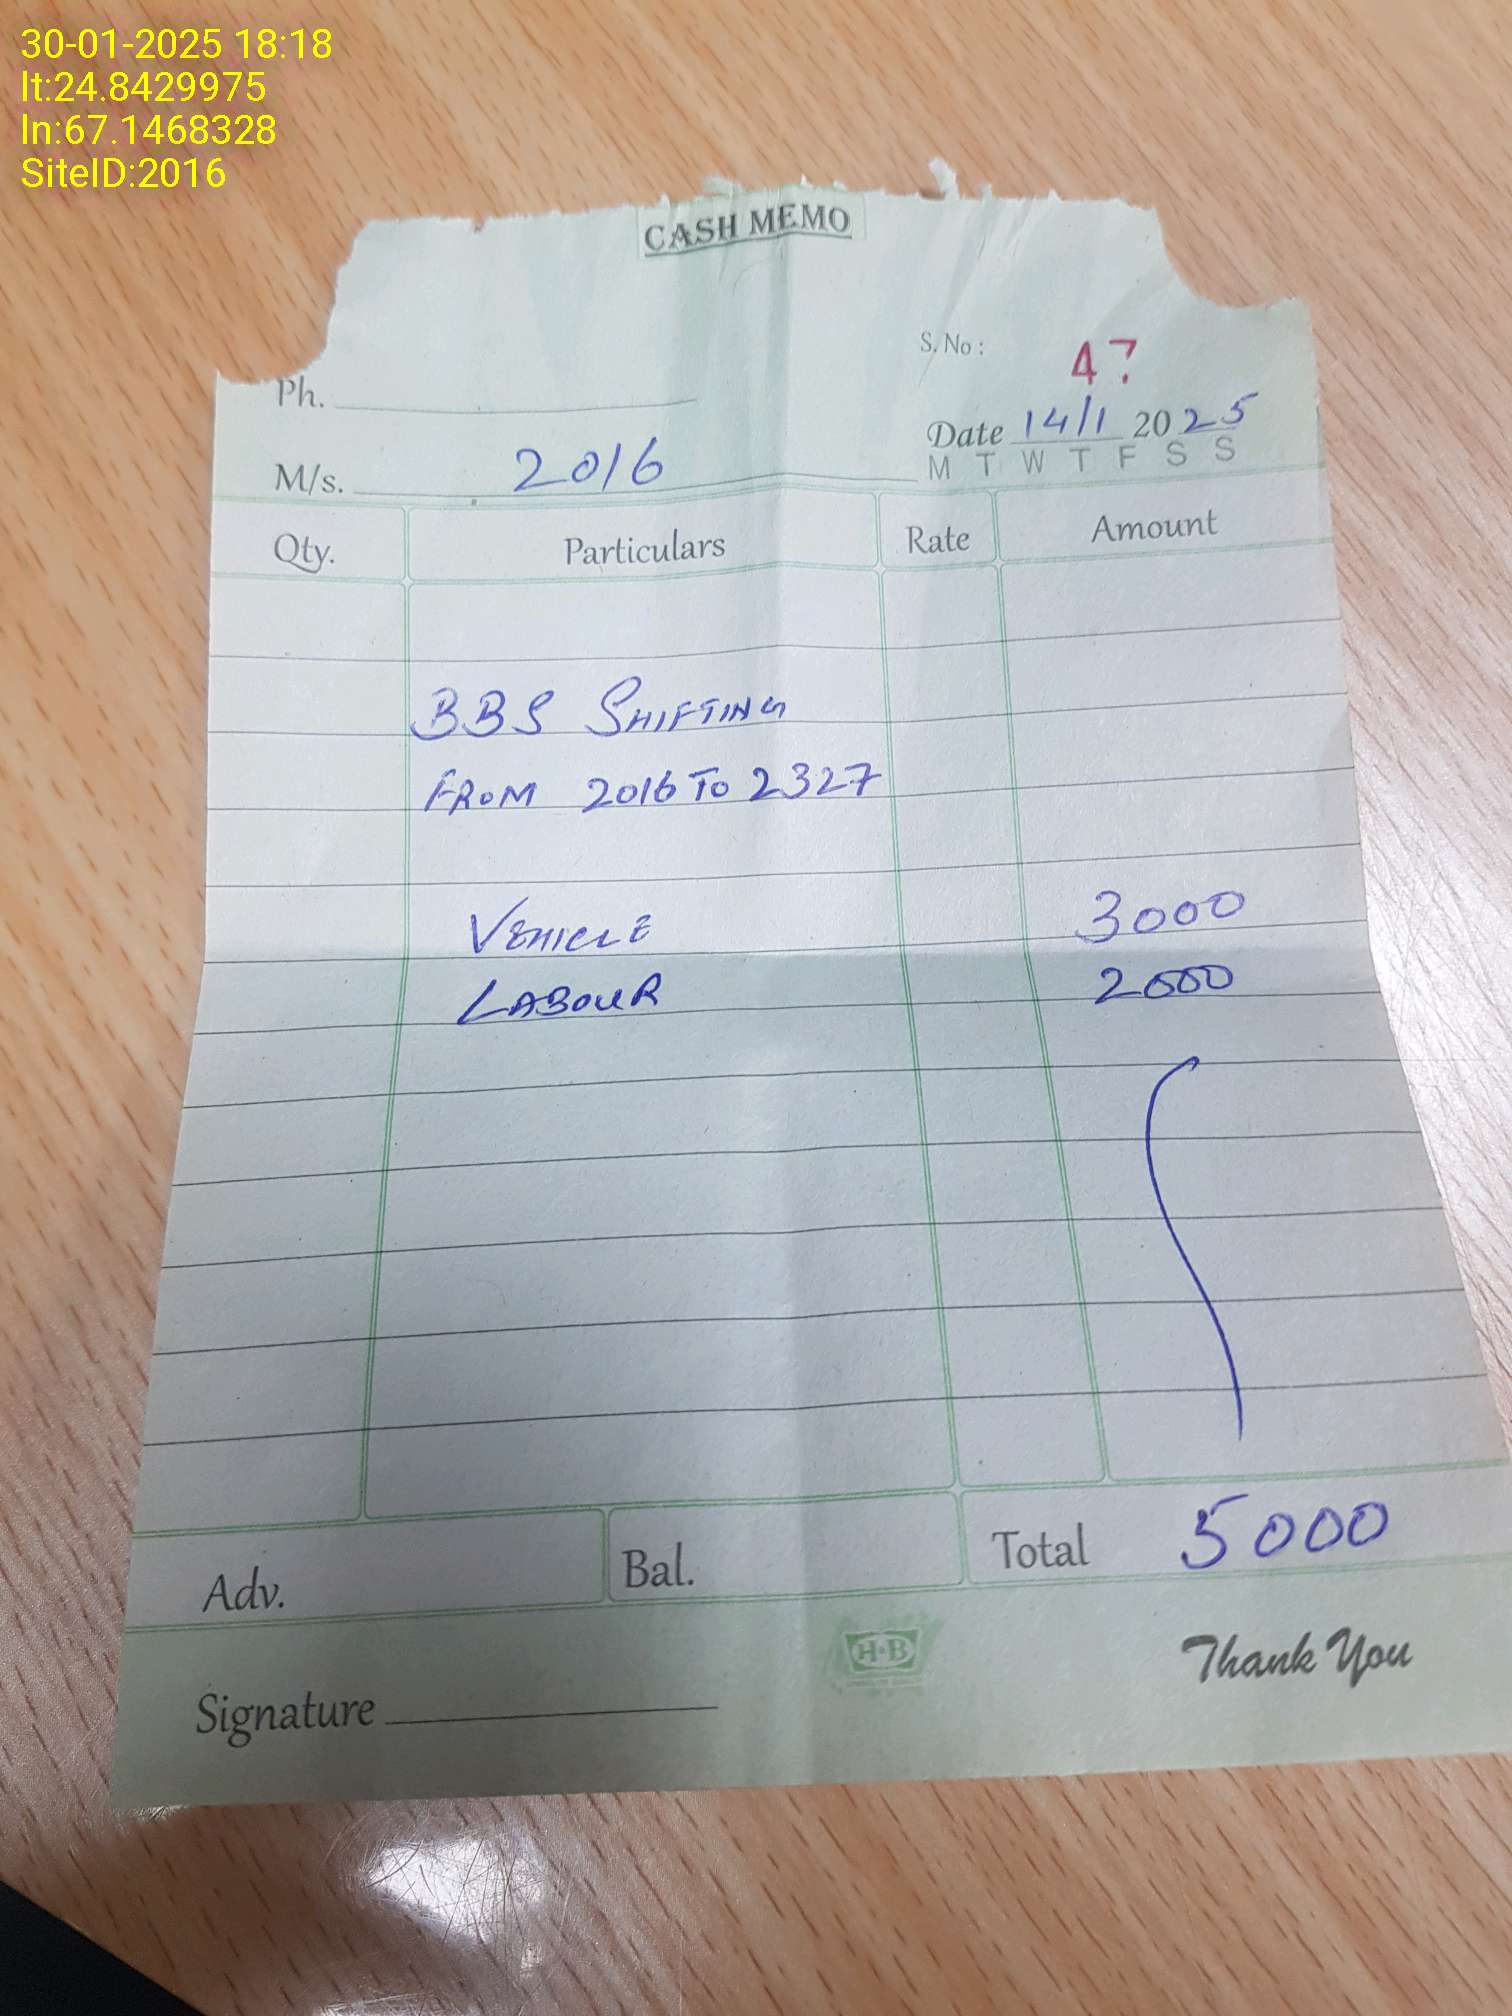 30-01-2025 18:18
lt:24.8429975
ln:67.1468328
SiteID:2016
CASH MEMO
S. No : 47
Ph.
Date 14/1 2025
M T W T F S S
M/s. 2016
Qty. Particulars Rate Amount
BBS SHIFTING
FROM 2016 TO 2327
VEHICLE 3000
LABOUR 2000
Adv. Bal. Total 5000
H·B
Thank You
Signature